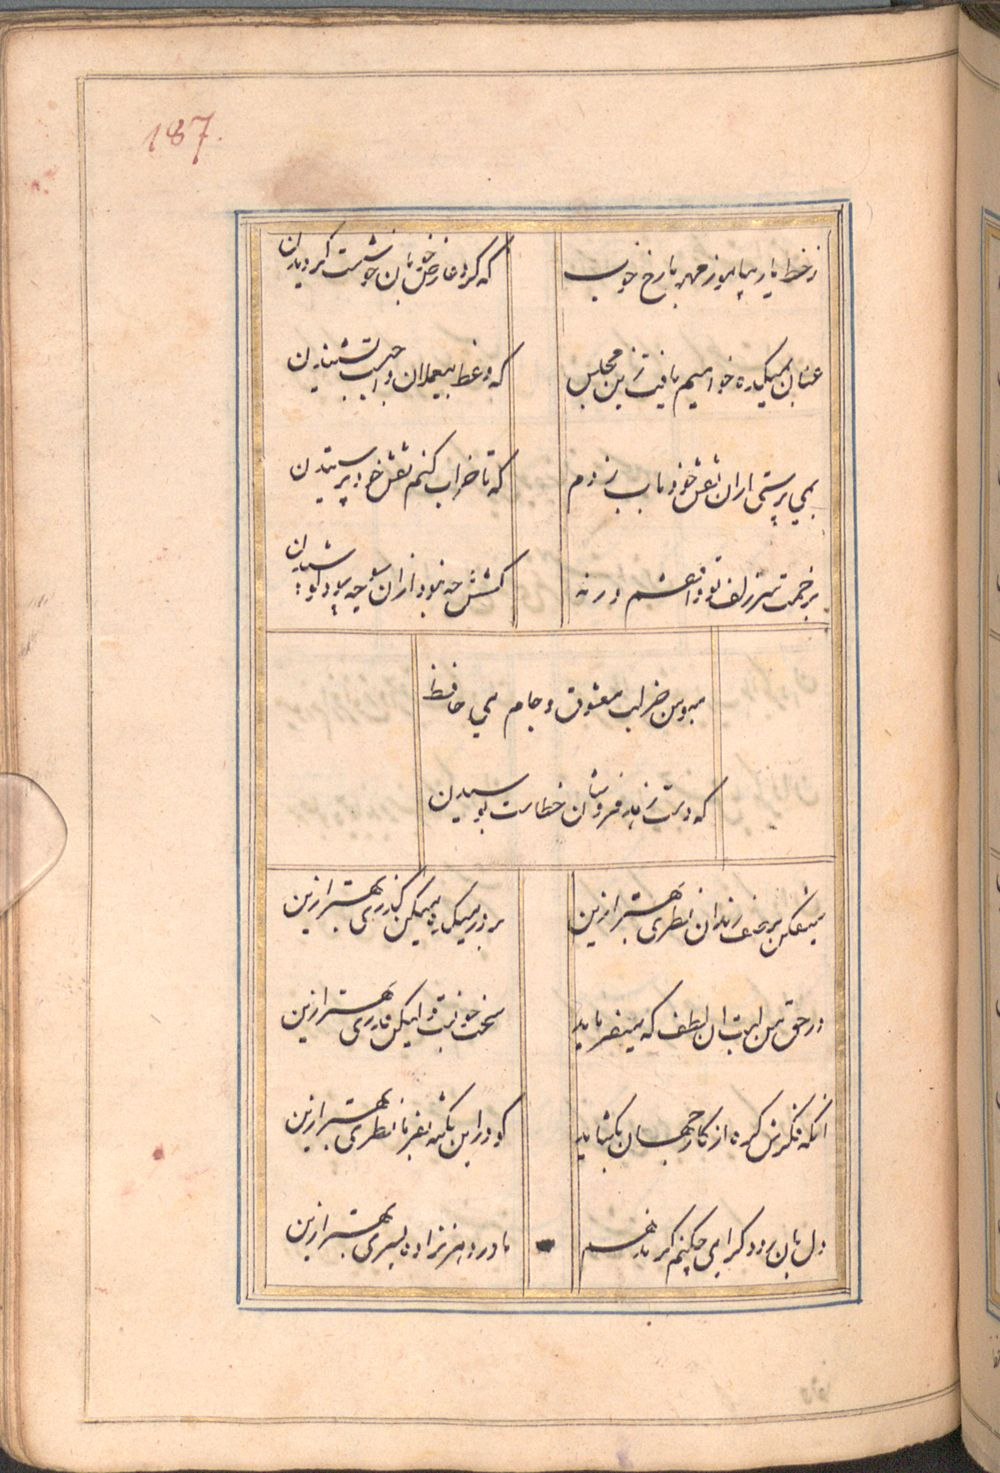 187.
ز خط یار بیاموز مهر با رخ خوب
که گرد عارض خوبان خوشست گردیدن
عنان بمیکده خواهیم تافت زین مجلس
که وعظ بیعملان واجبست نشنیدن
بمی پرستی ازان نقش خود بر آب زدم
که تا خراب کنم نقش خود پرستیدن
برحمت سر زلف تو واثقم ورنه
کشش چه نبود ازان سو چه سود کوشیدن
مبوس جز لب معشوق و جام می حافظ
که دست زهد فروشان خطاست بوسیدن
میفکن بر صف رندان نظری بهتر ازین
بر در میکده میکن گذری بهتر ازین
در حق من لبت ان لطف که میفرماید
سخت خوبست ولیکن قدری بهتر ازین
انکه فکرش گره از کار جهان بگشاید
گو درین نکته بفرما نظری بهتر ازین
دل بان رود گرامی چکنم گر ندهم
مادر دهر نزاده پسری بهتر ازین